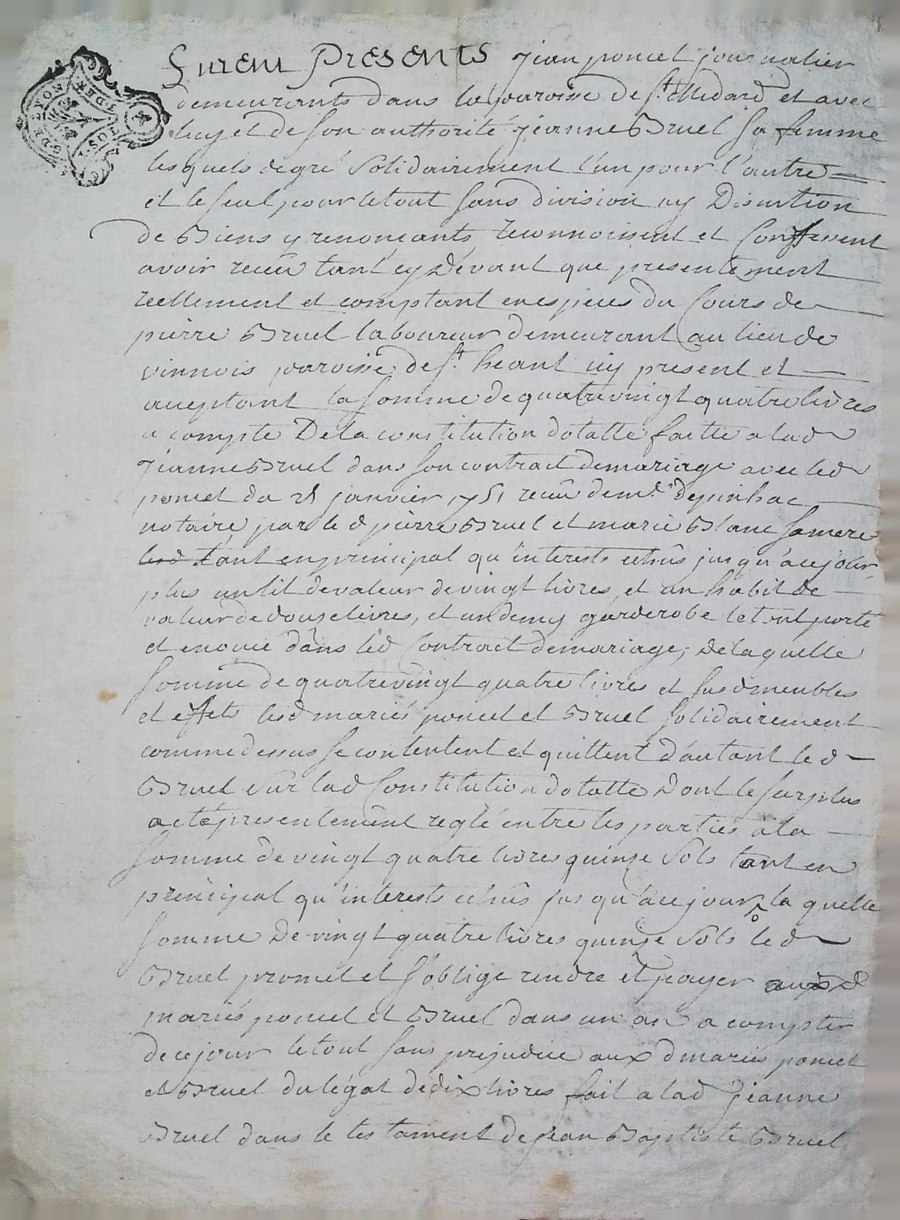 Furent Presents jean poncet journalier
demeurants dans la paroisse de st. Medard et avec
luy et de son authorité jeanne Bruel sa femme
lesquels de gré solidairement l'un pour l'autre
et le seul pour le tout sans division ny Discution
de Biens y renonçants reconnoissent et Confessent
avoir receu tant cy Devant que presentement
reellement et comptant en espieces du Cours de
pierre Bruel laboureur demeurant au lieu de
vinnois paroisse de st. heant icy present et
aceptant la somme de quatrevingt quatre livres
a compte De la constitution dotalle faitte a lad
jeanne Bruel dans son contract de mariage avec led
poncet du janvier 1751 receu de me.
notaire par led pierre Bruel et marie Blanc sa mere
tant en principal qu'interests echûs jusqu'a ce jour
plus un lit de valeur de vingt livres, et un habit de
valeur de douse livres, et un demy garderobe le tout porté
et enoncé dans led Contract de mariage, de la quelle
somme de quatrevingt quatre livres et susd meubles
et effets lesd mariés poncet et Bruel solidairement
comme dessus se contentent et quittent d'autant led
Bruel sur lad Constitution dotalle Dont le surplus
a eté presentement reglé entre les parties a la
somme de vingt quatre livres quinse sols tant en
principal qu'interests echûs jusqu'a ce jour, la quelle
somme De vingt quatre livres quinse sols led
Bruel promet et s'oblige rendre et payer auxd
mariés poncet et Bruel dans un an a compter
de ce jour le tout sans prejudice aux d mariés poncet
et Bruel du légat de dix livres fait a lad jeanne
Bruel dans le testament de jean Baptiste Bruel